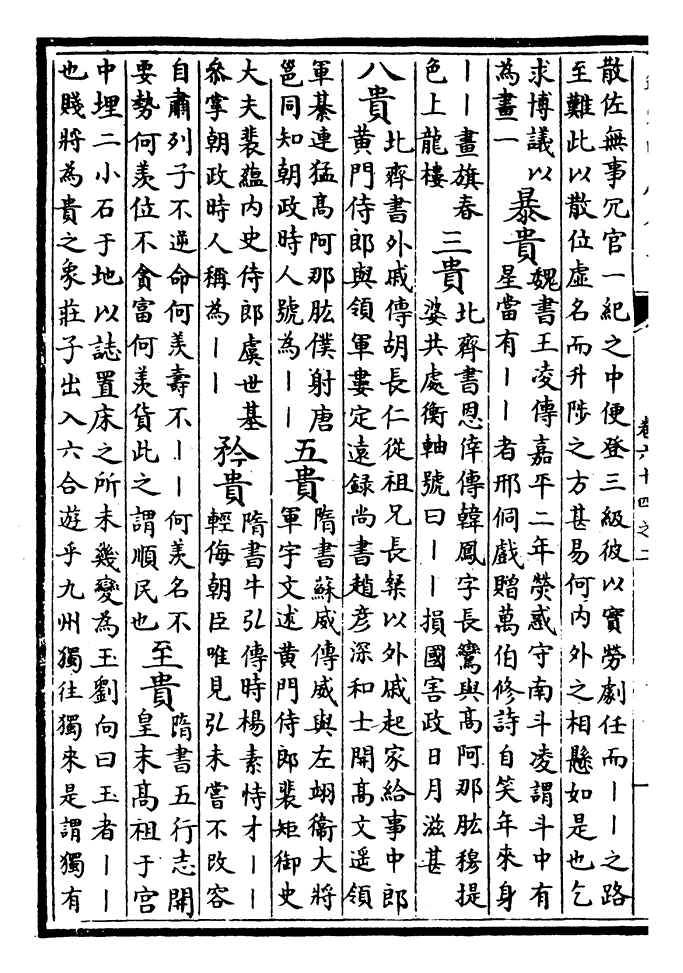 卷六十四之二
散佐無事冗官一紀之中便登三級彼以實勞劇任而｜｜之路
至難此以散位虛名而升陟之方甚易何内外之相懸如是也乞
求博議以
為畫一
暴貴
魏書王凌傳嘉平二年熒惑守南斗凌謂斗中有
星當有｜｜者邢侗戲贈萬伯修詩自笑年來身
｜｜畫旗春
色上龍樓
三貴
北齊書恩倖傳韓鳳字長鸞與高阿那肱穆提
婆共處衡軸號曰｜｜損國害政日月滋甚
八貴
北齊書外戚傳胡長仁從祖兄長粲以外戚起家給事中郎
黄門侍郎與領軍婁定遠録尚書趙彦深和士開高文遥領
軍綦連猛高阿那肱僕射唐
邕同知朝政時人號為｜｜
五貴
隋書蘇威傳威與左翊衛大將
軍宇文述黄門侍郎裴矩御史
大夫裴藴内史侍郎虞世基
參掌朝政時人稱為｜｜
矜貴
隋書牛弘傳時楊素恃才｜｜
輕侮朝臣唯見弘未嘗不改容
自肅列子不逆命何羨壽不｜｜何羨名不
要勢何羨位不貪富何羨貨此之謂順民也
至貴
隋書五行志開
皇末高祖于宫
中埋二小石于地以誌置床之所未幾變為玉劉向曰玉者｜｜
也賤將為貴之象莊子出入六合遊乎九州獨往獨來是謂獨有